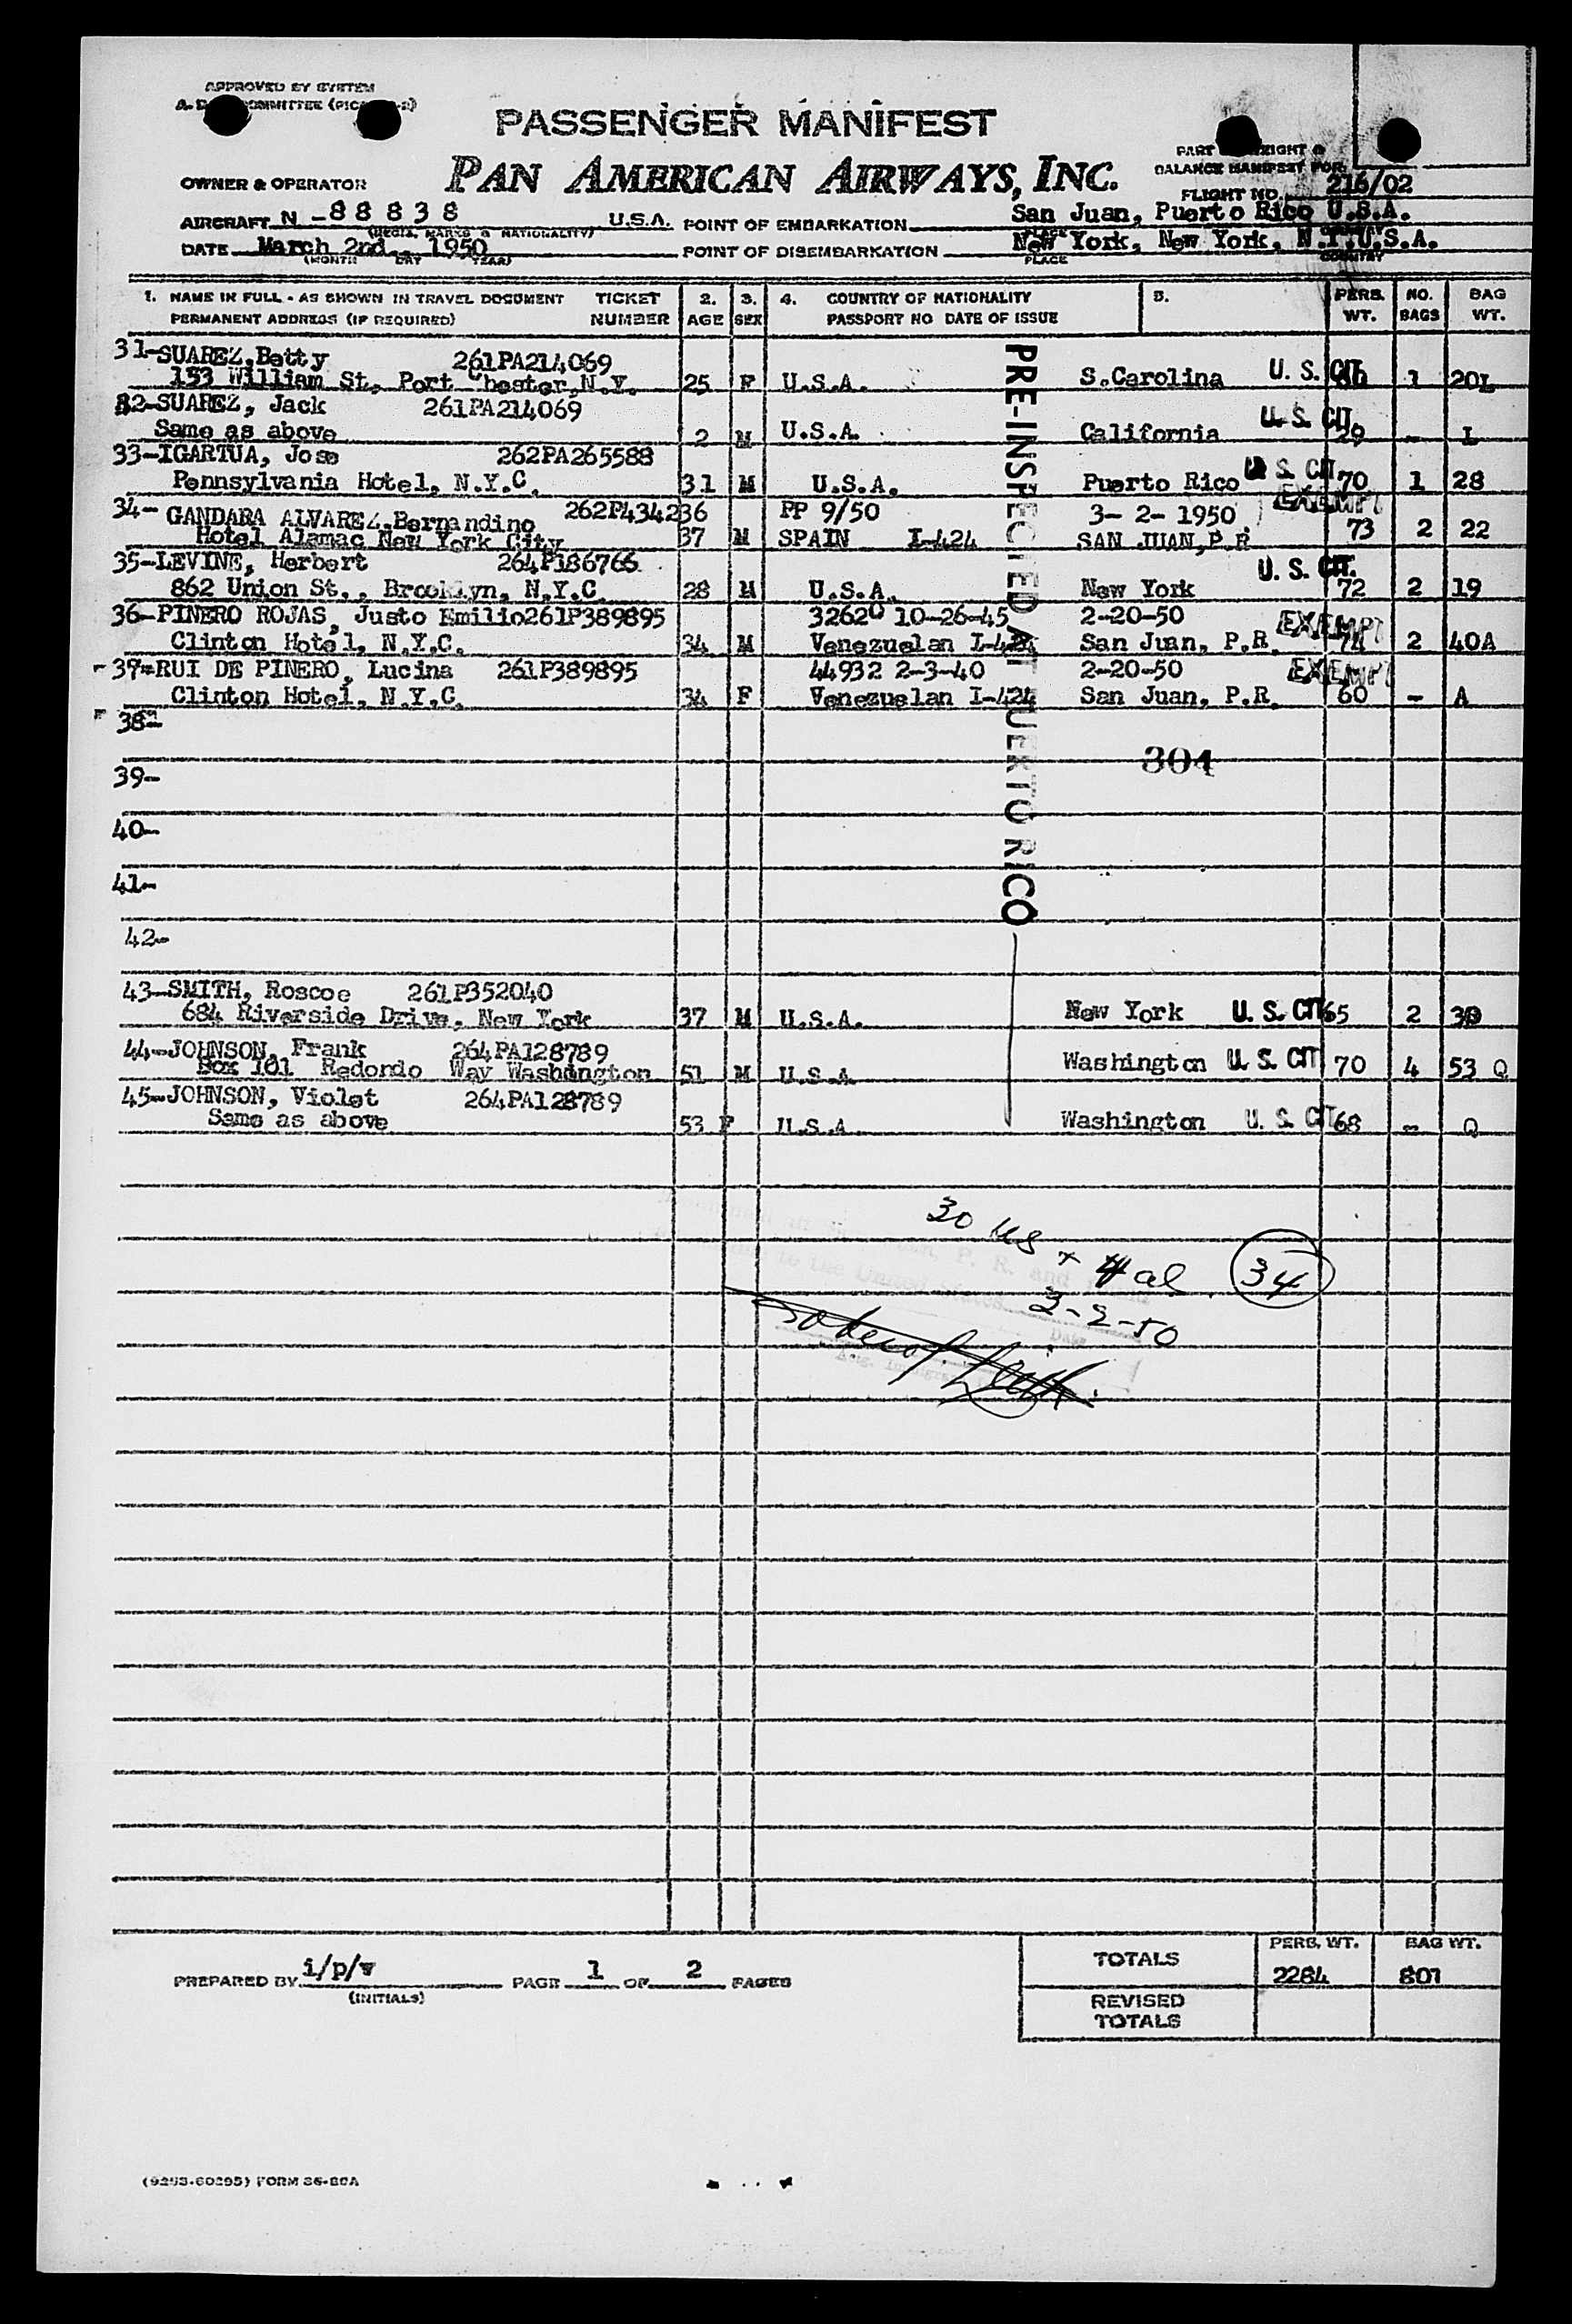 APPROVED BY SYSTEM
PASSENGER MANIFEST
PAN AMERICAN AIRWAYS, INC.
PART WEIGHT &
BALANCE MANIFEST FOR
OWNER & OPERATOR
FLIGHT NO. 216/02
AIRCRAFT N -88838 U.S.A. POINT OF EMBARKATION San Juan, Puerto Rico U.S.A.
(REGIS. MARKS & NATIONALITY) PLACE COUNTRY
DATE March 2nd., 1950 POINT OF DISEMBARKATION New York, New York, N.Y.U.S.A.
(MONTH DAY YEAR) PLACE COUNTRY
1. NAME IN FULL - AS SHOWN IN TRAVEL DOCUMENT TICKET 2. 3. 4. COUNTRY OF NATIONALITY 5. PERS. NO. BAG
PERMANENT ADDRESS (IF REQUIRED) NUMBER AGE SEX PASSPORT NO DATE OF ISSUE WT. BAGS WT.
31-SUAREZ,Betty 261PA214069
153 William St. Port Chester,N.Y. 25 F U.S.A. S.Carolina U. S. CIT. 1 20L
32-SUAREZ, Jack 261PA214069
Same as above 2 M U.S.A. California U. S. CIT. 29 - L
33-IGARTUA, Jose 262PA265588
Pennsylvania Hotel, N.Y.C. 31 M U.S.A. Puerto Rico U. S. CIT. 70 1 28
34- GANDARA ALVAREZ,Bernandino 262P434236 PP 9/50 3- 2- 1950 EXEMPT
Hotel Alamac New York City 37 M SPAIN I-424 SAN JUAN,P.R. 73 2 22
35-LEVINE, Herbert 264P386766 U. S. CIT.
862 Union St., Brooklyn, N.Y.C. 28 M U.S.A. New York 72 2 19
36-PINERO ROJAS, Justo Emilio261P389895 3262 10-26-45 2-20-50 EXEMPT
Clinton Hotel, N.Y.C. 34 M Venezuelan I-424 San Juan, P.R. 74 2 40A
37-RUI DE PINERO, Lucina 261P389895 44932 2-3-40 2-20-50 EXEMPT
Clinton Hotel, N.Y.C. 34 F Venezuelan I-424 San Juan, P.R. 60 - A
38-
304
39-
40-
41-
42-
PRE-INSPECTED AT PUERTO RICO
43-SMITH, Roscoe 261P352040
684 Riverside Drive, New York 37 M U.S.A. New York U. S. CIT 65 2 30
44-JOHNSON, Frank 264PA128789
Box 101 Redondo Way Washington 51 M U.S.A Washington U. S. CIT 70 4 53 Q
45-JOHNSON, Violet 264PA128789
Same as above 53 F U.S.A Washington U. S. CIT 68 - Q
30 US + 4 al 34
3-2-50
PREPARED BY i/p/v PAGE 1 OF 2 PAGES
(INITIALS)
TOTALS PERS. WT. BAG WT.
2284 801
REVISED
TOTALS
(9293-60295) FORM 36-80A